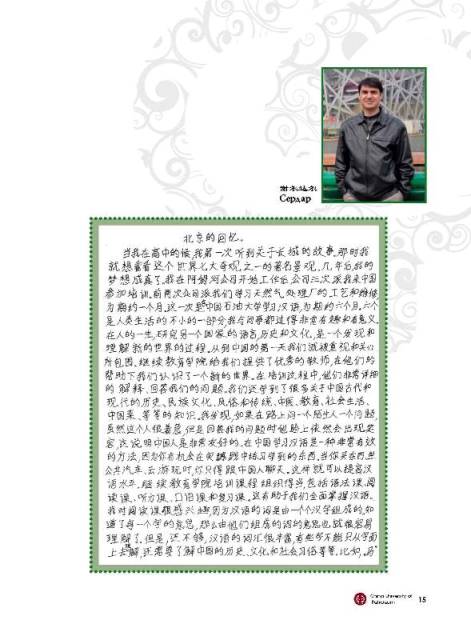 谢尔达尔
Сердар
北京的回忆。
当我在高中的候,我第一次听到关于长城的故事,那时我
就想看看这个世界七大奇观之一的著名景观,几年后我的
梦想成真了。我在阿姆河公司开始工作后,公司三次派我来中国
参加培训。前两次公司派我们学习天然气处理厂的工艺和维修
为期约一个月,这一次来中国石油大学学习汉语,为期约六个月。六个
是人类生活的不小的一部分我每时都过得非常有趣和有意义
在人的一生,研究另一个国家的语言、历史和文化,是一个发现和
理解新的世界的过程。从到中国的第一天我们就被重视和关心
所包围。继续教育学院给我们提供了优秀的教师,在他们的
帮助下我们认识了一个新的世界。在培训过程中,他们非常详细
的解释、回答我们的问题。我们还学到了很多关于中国古代和
现代的历史、民族文化、风俗和传统、中医、教育、社会生活、
中国菜、等等的知识。我发现,如果在路上问一个陌生人一个问题,
虽然这个人很着急,但是回答我的问题时他脸上依然会出现笑
容,这说明中国人是非常友好的。在中国学习汉语是一种非常有效
的方法,因为你有机会在实践中练习学到的东西,当你买东西,坐
公共汽车、去游玩时,你只得跟中国人聊天。这样就可以提高汉
语水平。继续教育学院培训课程组织得当,包括语法课、阅
读课、听力课、口语课和复习课,这有助于我们全面掌握汉语。
我对阅读课很感兴趣,因为汉语的词是由一个个汉字组成的,知
道了每一个字的意思,那么由他们组成的词的意思也就很容易
理解了。但是,还不够,汉语的词汇很丰富,有些字不能只从字面
上去解,还需要了解中国的历史、文化和社会习俗等等,比如,“马”
China University of
Petroleum
15